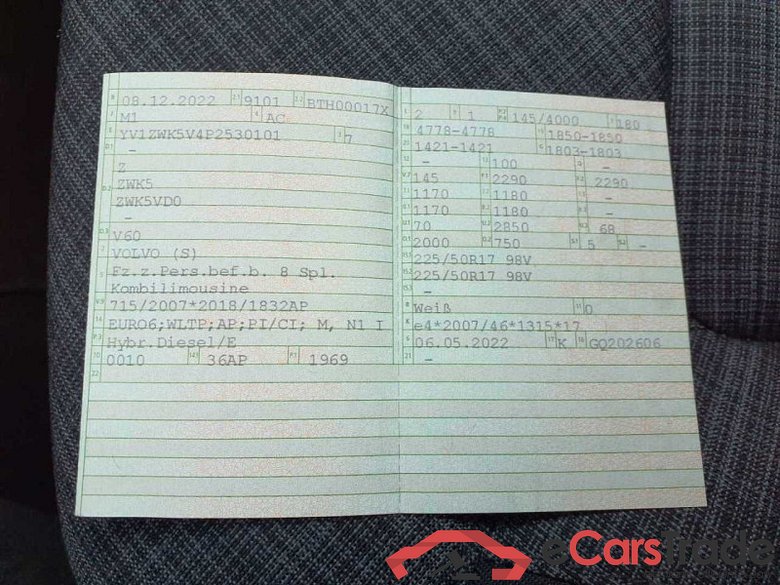 08.12.2022 9101 BTH00017X
M1 AC
YV1ZWK5V4P2530101 7
-
Z
ZWK5
ZWK5VD0
-
V60
VOLVO (S)
Fz.z.Pers.bef.b. 8 Spl.
Kombilimousine
715/2007*2018/1832AP
EURO6;WLTP;AP;PI/CI; M, N1 I
Hybr.Diesel/E
0010 36AP 1969
22
2 1 145/4000 180
4778-4778 1850-1850
1421-1421 1803-1803
- 100 -
145 2290 2290
1170 1180 -
1170 1180 -
70 2850 68
2000 750 5 -
225/50R17 98V
225/50R17 98V
-
Weiß 0
e4*2007/46*1315*17
06.05.2022 K GQ202606
21 -
eCarstrade